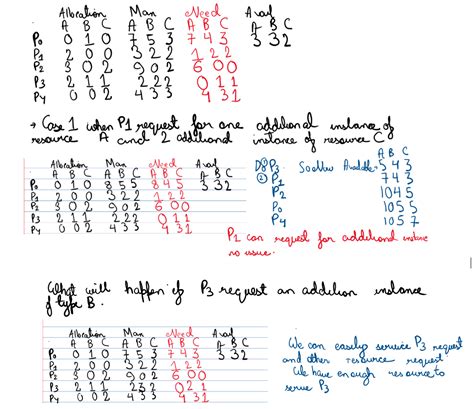 Allocation Max Need Avail
A B C A B C A B C A B C
P0 0 1 0 7 5 3 7 4 3 3 3 2
P1 2 0 0 3 2 2 1 2 2
P2 3 0 2 9 0 2 6 0 0
P3 2 1 1 2 2 2 0 1 1
P4 0 0 2 4 3 3 4 3 1
→ Case 1 when P1 request for one additional instance of
resource A and 2 additional instance of resource C
Allocation Max Need Avail
A B C A B C A B C A B C
P0 0 1 0 8 5 5 8 4 5 3 3 2
P1 2 0 0 3 2 2 1 2 2
P2 3 0 2 9 0 2 6 0 0
P3 2 1 1 2 2 2 0 1 1
P4 0 0 2 4 3 3 4 3 1
A B C
P3 So Now Available = 5 4 3
P1 7 4 3
P2 10 4 5
P0 10 5 5
P4 10 5 7
P1 can request for additional instance
no issue.
What will happen if P3 request an addition instance
of type B.
Allocation Max Need Avail
A B C A B C A B C A B C
P0 0 1 0 7 5 3 7 4 3 3 3 2
P1 2 0 0 3 2 2 1 2 2
P2 3 0 2 9 0 2 6 0 0
P3 2 1 1 2 3 2 0 2 1
P4 0 0 2 4 3 3 4 3 1
We can easily service P3 request
and other resource request
We have enough resource to
serve P3